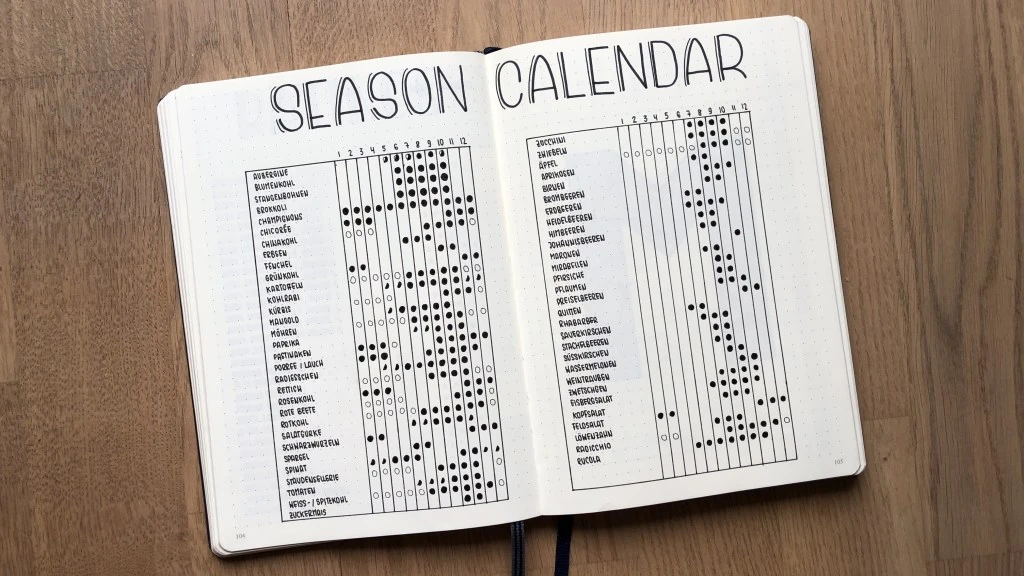 SEASON CALENDAR
1 2 3 4 5 6 7 8 9 10 11 12
AUBERGINE
BLUMENKOHL
STANGENBOHNEN
BROKKOLI
CHAMPIGNONS
CHICORÉE
CHINAKOHL
ERBSEN
FENCHEL
GRÜNKOHL
KARTOFFELN
KOHLRABI
KÜRBIS
MANGOLD
MÖHREN
PAPRIKA
PASTINAKEN
PORREE / LAUCH
RADIESSCHEN
RETTICH
ROSENKOHL
ROTE BEETE
ROTKOHL
SALATGURKE
SCHWARZWURZELN
SPARGEL
SPINAT
STAUDENSELLERIE
TOMATEN
WEISS- / SPITZKOHL
ZUCKERMAIS
104
1 2 3 4 5 6 7 8 9 10 11 12
ZUCCHINI
ZWIEBELN
ÄPFEL
APRIKOSEN
BIRNEN
BROMBEEREN
ERDBEEREN
HEIDELBEEREN
HIMBEEREN
JOHANNISBEEREN
MARONEN
MIRABELLEN
PFIRSICHE
PFLAUMEN
PREISELBEEREN
QUITTEN
RHABARBER
SAUERKIRSCHEN
STACHELBEEREN
SÜSSKIRSCHEN
WASSERMELONEN
WEINTRAUBEN
ZWETSCHGEN
EISBERGSALAT
KOPFSALAT
FELDSALAT
LÖWENZAHN
RADICCHIO
RUCOLA
105